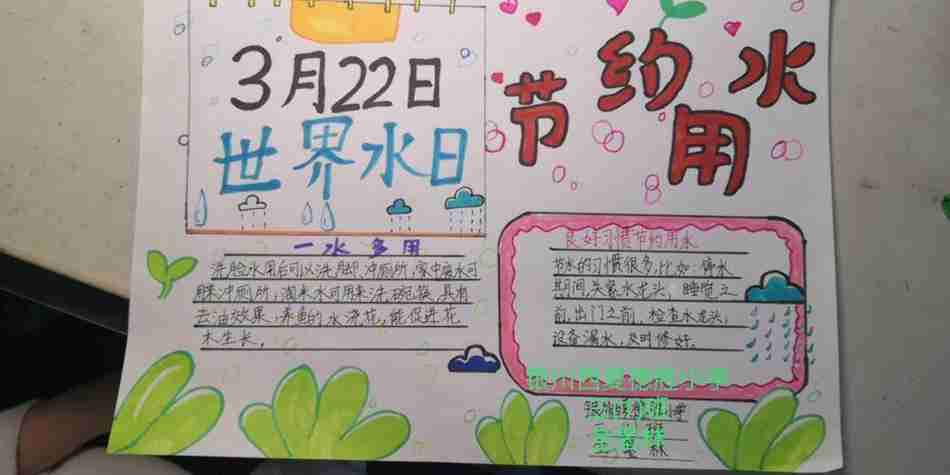 3月22日
世界水日
节约用水
一水多用
洗脸水用后可以洗脚,冲厕所,家中废水可
用来冲厕所,淘米水可用来洗碗筷,具有
去油效果,养鱼的水浇花,能促进花
木生长。
良好习惯节约用水
节水的习惯很多,比如:停水
期间,关紧水龙头,睡觉之
前,出门之前,检查水龙头,
设备漏水,及时修好。
小学